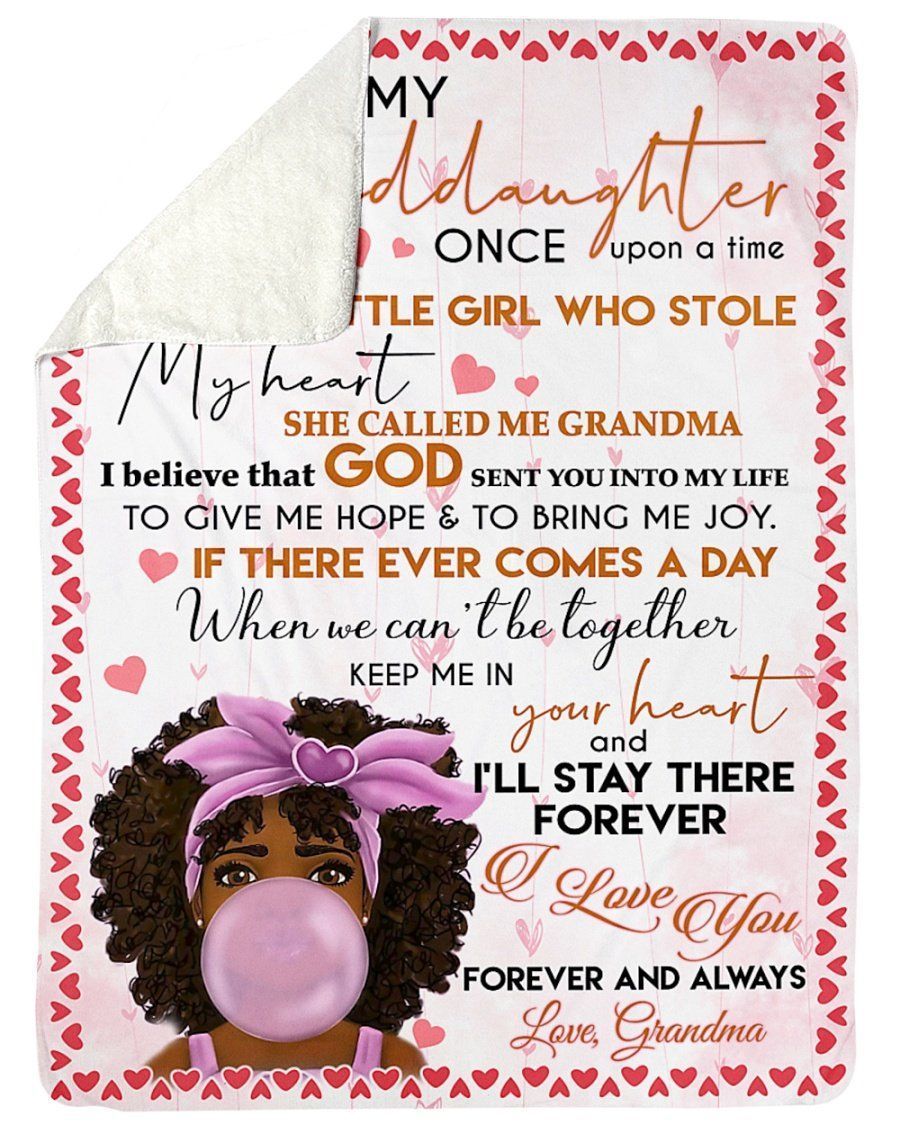 MY
ddaughter
ONCE upon a time
TLE GIRL WHO STOLE
My heart
SHE CALLED ME GRANDMA
I believe that GOD SENT YOU INTO MY LIFE
TO GIVE ME HOPE & TO BRING ME JOY.
IF THERE EVER COMES A DAY
When we can't be together
KEEP ME IN
your heart
and
I'LL STAY THERE
FOREVER
I Love You
FOREVER AND ALWAYS
Love, Grandma